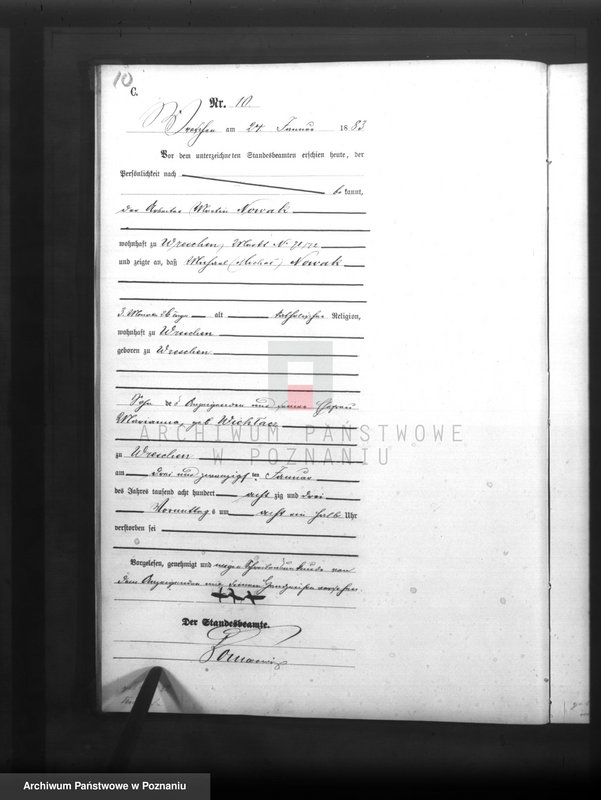 10
C.
Nr. 10
Wreschen am 24. Januar 1883
Vor dem unterzeichneten Standesbeamten erschien heute, der
Persönlichkeit nach
bekannt,
der Arbeiter Martin Nowak
wohnhaft zu Wreschen, Markt Nr.
und zeigte an, daß Michael Nowak
3 Monate 26 Tage alt katholischer Religion,
wohnhaft zu Wreschen
geboren zu Wreschen
Sohn des Anzeigenden und seiner Ehefrau
Marianna, geb Wichlacz
ARCHIWUM PAŃSTWOWE
W POZNANIU
zu Wreschen
am drei und zwanzigsten Januar
des Jahres tausend acht hundert achtzig und drei
Vormittags um acht ein halb Uhr
verstorben sei
Vorgelesen, genehmigt und wegen Schreibensunkunde von
dem Anzeigenden mit seinem Handzeichen versehen.
+++
Der Standesbeamte.
Archiwum Państwowe w Poznaniu